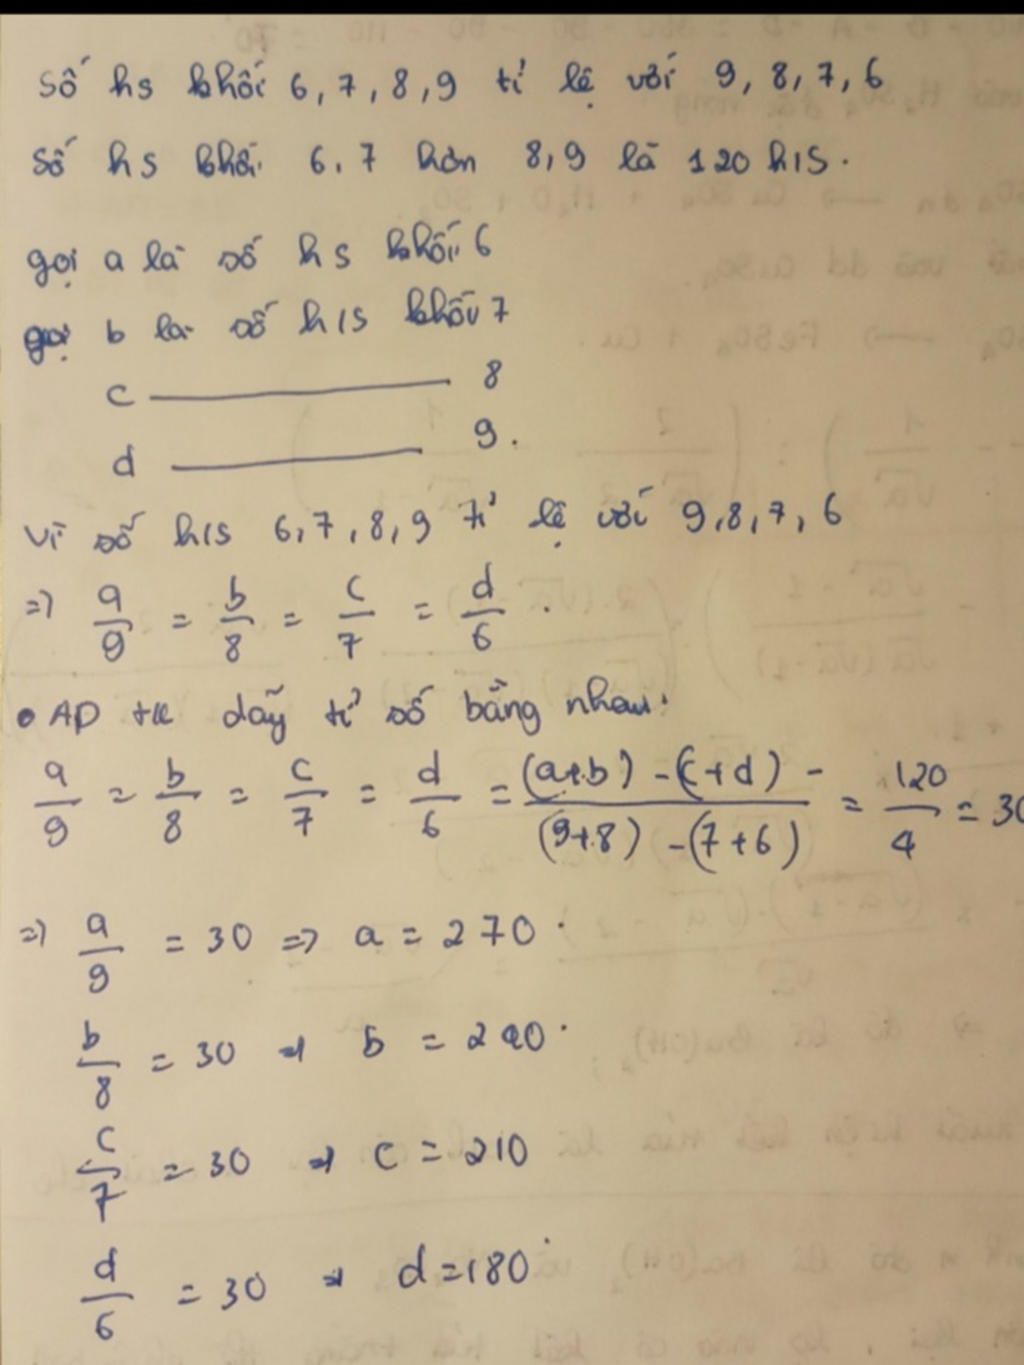 số hs khối 6, 7, 8, 9 tỉ lệ với 9, 8, 7, 6
số hs khối 6, 7 hơn 8, 9 là 120 h/s.
gọi a là số hs khối 6
gọi b là số h/s khối 7
c ——— 8
d ——— 9.
vì số h/s 6, 7, 8, 9 tỉ lệ với 9, 8, 7, 6
=> a/9 = b/8 = c/7 = d/6.
• AD t/c dãy tỉ số bằng nhau:
a/9 = b/8 = c/7 = d/6 = (a+b) - (c+d) - / (9+8) - (7+6) = 120/4 = 30
=> a/9 = 30 => a = 270.
b/8 = 30 => b = 240.
c/7 = 30 => c = 210
d/6 = 30 => d = 180